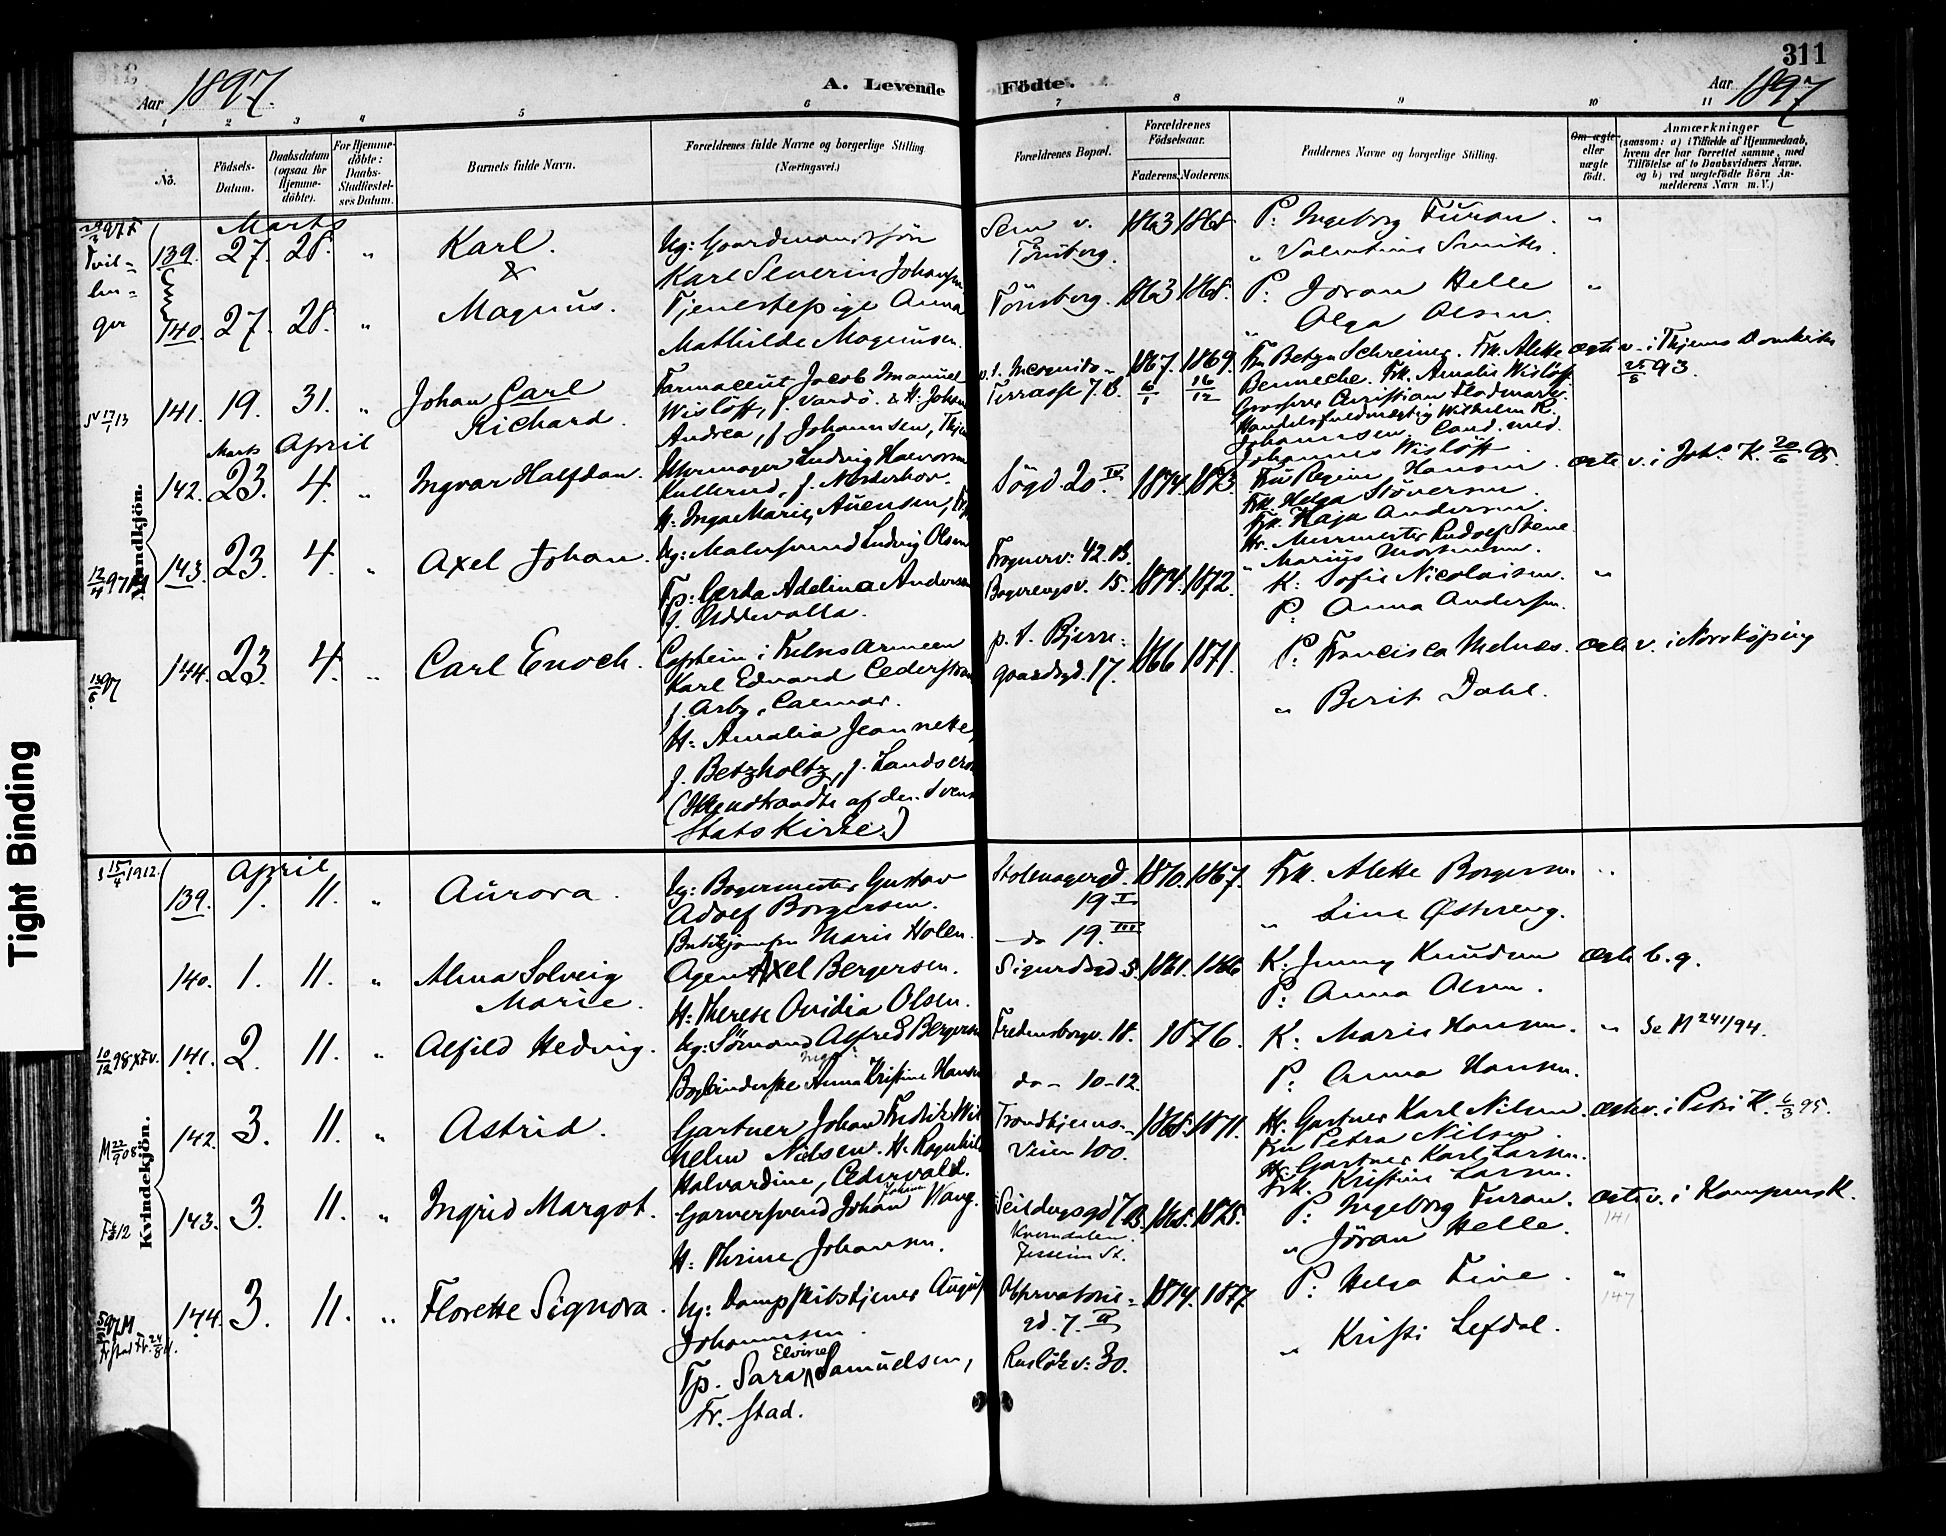 311
Aar 1897.
A. Levende
Födte.
Aar 1897
1 2 3 4 5 6 7 8 9 10 11
No.
Födsels-Datum.
Daabsdatum (ogsaa for Hjemme-döbte).
For Hjemme-döbte: Daabs-Stadfæstel-ses Datum.
Barnets fulde Navn.
Forældrenes fulde Navne og borgerlige Stilling
(Næringsvei.)
Forældrenes Bopæl.
Forældrenes Födselsaar.
Faderens. Moderens.
Faddernes Navne og borgerlige Stilling.
Om ægte eller uægte födt.
Anmærkninger
(saasom: a) i Tilfælde af Hjemmedaab, hvem der har forrettet samme, med Tilföielse af to Daabsvidners Navne, og b) ved uægtefödte Börn An-melderens Navn m. V.)
Mandkjön.
Marts
Tvil-
lin-
ger
139. 27. 28. " Karl.
&
Ug: Gaardmandssön
Karl Severin Johansen
Sem v.
Tönsberg.
1863 1868
P. Ingeborg Furan.
" Valentine Smith
"
140. 27. 28. " Magnus.
Tjenestepige Anna
Mathilde Magnusen.
Tönsberg. 1863 1868.
P. Joran Helle
Olga Olsen.
"
141. 19. 31. " Johan Carl
Richard.
Farmaceut Jacob Imanuel
Wislöff, f. Vardö. & H: Johan
Andrea, f Johannsen, Thjem
v. t. Incognito-
Terrasse 7. B.
1867. 6/1 1869. 16/12
Fru Betzy Schreiner. Frk. Alette
Benneche. Frk. Amalie Wislöff.
Grosserer Christian Fladmark.
Handelsfuldmægtig Wilhelm R.
Johannesen, Cand. med.
Johannes Wislöff
ægte v. i Thjems Domkirke
25/8 93.
Marts April
142. 23. 4. " Ingvar Halfdan.
Uhrmager Ludvig Halvorsen
Kullerud, f. Nesterhov.
H. Inga Marie, Auensen,
Sögd. 20. IV 1874. 1873.
Fru Regine Hansen
Frk. Helga Stöversen
Frk. Haja Andersen.
Hr. Murmester Rudolf Stene.
" Marius Mortensen.
ægte v. i Joh. K. 20/6 95.
12/4 97 M
143. 23. 4. " Axel Johan.
Ug: Malersvend Ludvig Olsen
Tp: Gerda Adelina Andersen
f. Uddevalla.
Frognerv: 42. B.
Bogerengsv. 15.
1874. 1872.
K: Sofie Nicolaisen.
P: Anna Andersen.
"
144. 23. 4. " Carl Enoch.
Captein i Frelsesarmeen
Karl Edvard Cederström
f. Arby, Calmar.
H: Amalia Jeannette,
f. Betzholtz, f. Landscrona
(Ikke udtraadte af den Svenske
Statskirke.)
p. t. Bjerre-
gaardsgd. 17.
1866 1871.
P: Francisca Melnæs.
" Berit Dahl.
ægte v. i Norrköping
Kvindekjön.
15/4 1912.
April
139. 1. 11. " Aurora.
Ug: Bagermester Gustav
Adolf Borgersen.
Butikjomfru Marie Holen.
Stolmagergd.
19 I
do 19. III
1870. 1867.
Frk. Alette Borgersen.
" Line Østereng.
"
140. 1. 11. " Alma Solveig
Marie.
Agent Axel Bergersen.
H: Therese Ovidia Olsen.
Sigurdsgd. 5. 1861. 1866
K. Jenny Knudsen
P: Anna Olsen.
ægte b. g.
10/12 98
141. 2. 11. " Alfild Hedvig.
Ug: Sömand Alfred Bergersen
Bogbinderske Anna Kristine Hansen
Fredensborgv. 18.
do - 10-12.
1876.
K: Marie Hansen.
P: Anna Hansen.
" Se M 241/94.
142. 3. 11. " Astrid.
Gartner Johan Fredrik Wil
helm Nielsen. H. Ragnhild
Halvardine, Cedervald.
Trondhjems-
Veien 100.
1868. 1871.
Hr. Gartner Karl Nilsen.
Fru Petra Nilsen.
Hr. Gartner Karl Larsen.
Frk. Kristine Larsen.
ægte v. i Petri K. 6/3 95.
143. 3. 11. " Ingrid Margot.
Garversvend Johan Johan Wang.
H. Thrine Johansen.
Seildugsgd 7 B.
Kværndalen.
Jessheim St.
1865. 1875.
P: Ingeborg Furan.
" Jöran Helle.
ægte v. i Kampens K.
141
144. 3. 11. " Florette Signora.
Ug: Dampskibstjener August
Johannesen.
Tp. Sara Elvine Samuelsen,
Fr. stad.
Observatorie-
gd. 7. III
Ruslökv: 30.
1874. 1877.
P: Helga Fine.
" Kristi Lefdal.
"
147
Tight Binding